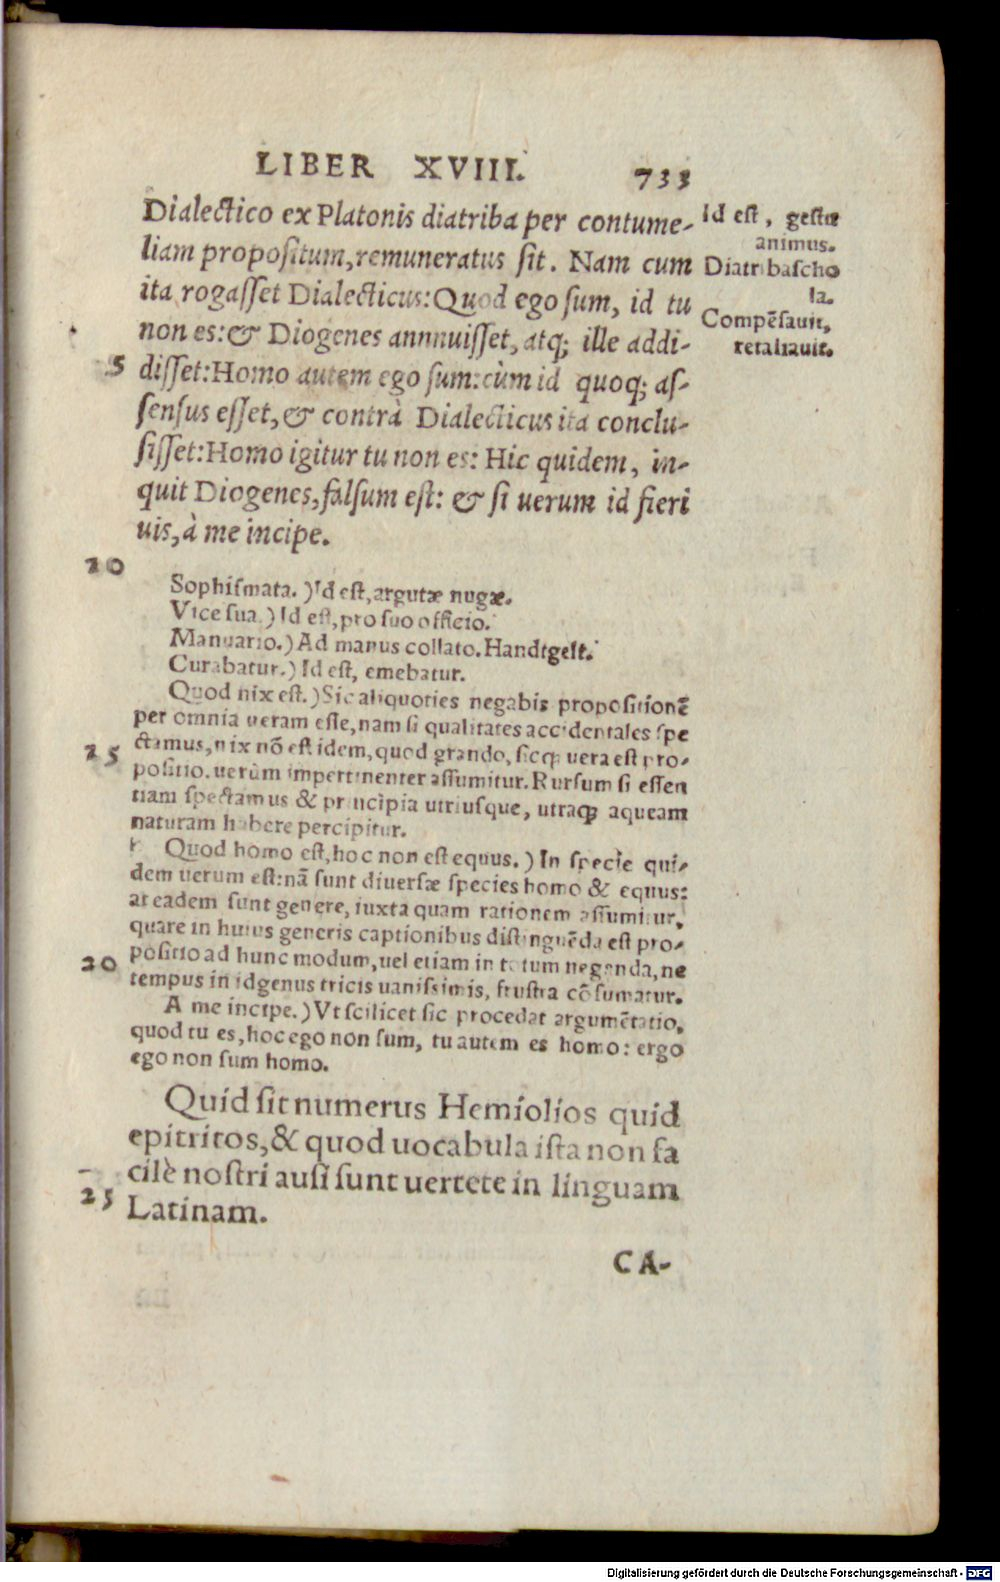 LIBER XVIII. 733
Dialectico ex Platonis diatriba per contume-
liam propositum, remuneratus sit. Nam cum
ita rogasset Dialecticus: Quod ego sum, id tu
non es: & Diogenes annnuisset, atq; ille addi-
5 disset: Homo autem ego sum: cùm id quoq; as-
sensus esset, & contrà Dialecticus ita conclu-
sisset: Homo igitur tu non es: Hic quidem, in-
quit Diogenes, falsum est: & si uerum id fieri
uis, à me incipe.
Id est, gestiit
animus.
Diatriba scho
la.
Compēsauit,
retaliauit.
10
Sophismata.) Id est, argutæ nugæ.
Vice sua.) Id est, pro suo officio.
Manuario.) Ad manus collato. Handtgelt.
Curabatur.) Id est, emebatur.
Quod nix est.) Sic aliquoties negabis propositionē
per omnia ueram esse, nam si qualitates accidentales spe
15 ctamus, nix nō est idem, quod grando, sicq; uera est pro-
positio. uerùm impertinenter assumitur. Rursum si essen
tiam spectamus & principia utriusque, utraq; aqueam
naturam habere percipitur.
Quod homo est, hoc non est equus.) In specie qui-
dem uerum est: nā sunt diuersæ species homo & equus:
at eadem sunt genere, iuxta quam rationem assumitur,
quare in huius generis captionibus distinguēda est pro-
20 positio ad hunc modum, uel etiam in totum neganda, ne
tempus in idgenus tricis uanissimis, frustra cōsumatur.
A me incipe.) Vt scilicet sic procedat argumētatio,
quod tu es, hoc ego non sum, tu autem es homo: ergo
ego non sum homo.
Quid sit numerus Hemiolios quid
epitritos, & quod uocabula ista non fa
cilè nostri ausi sunt uertete in linguam
25 Latinam.
CA-
Digitalisierung gefördert durch die Deutsche Forschungsgemeinschaft - DFG